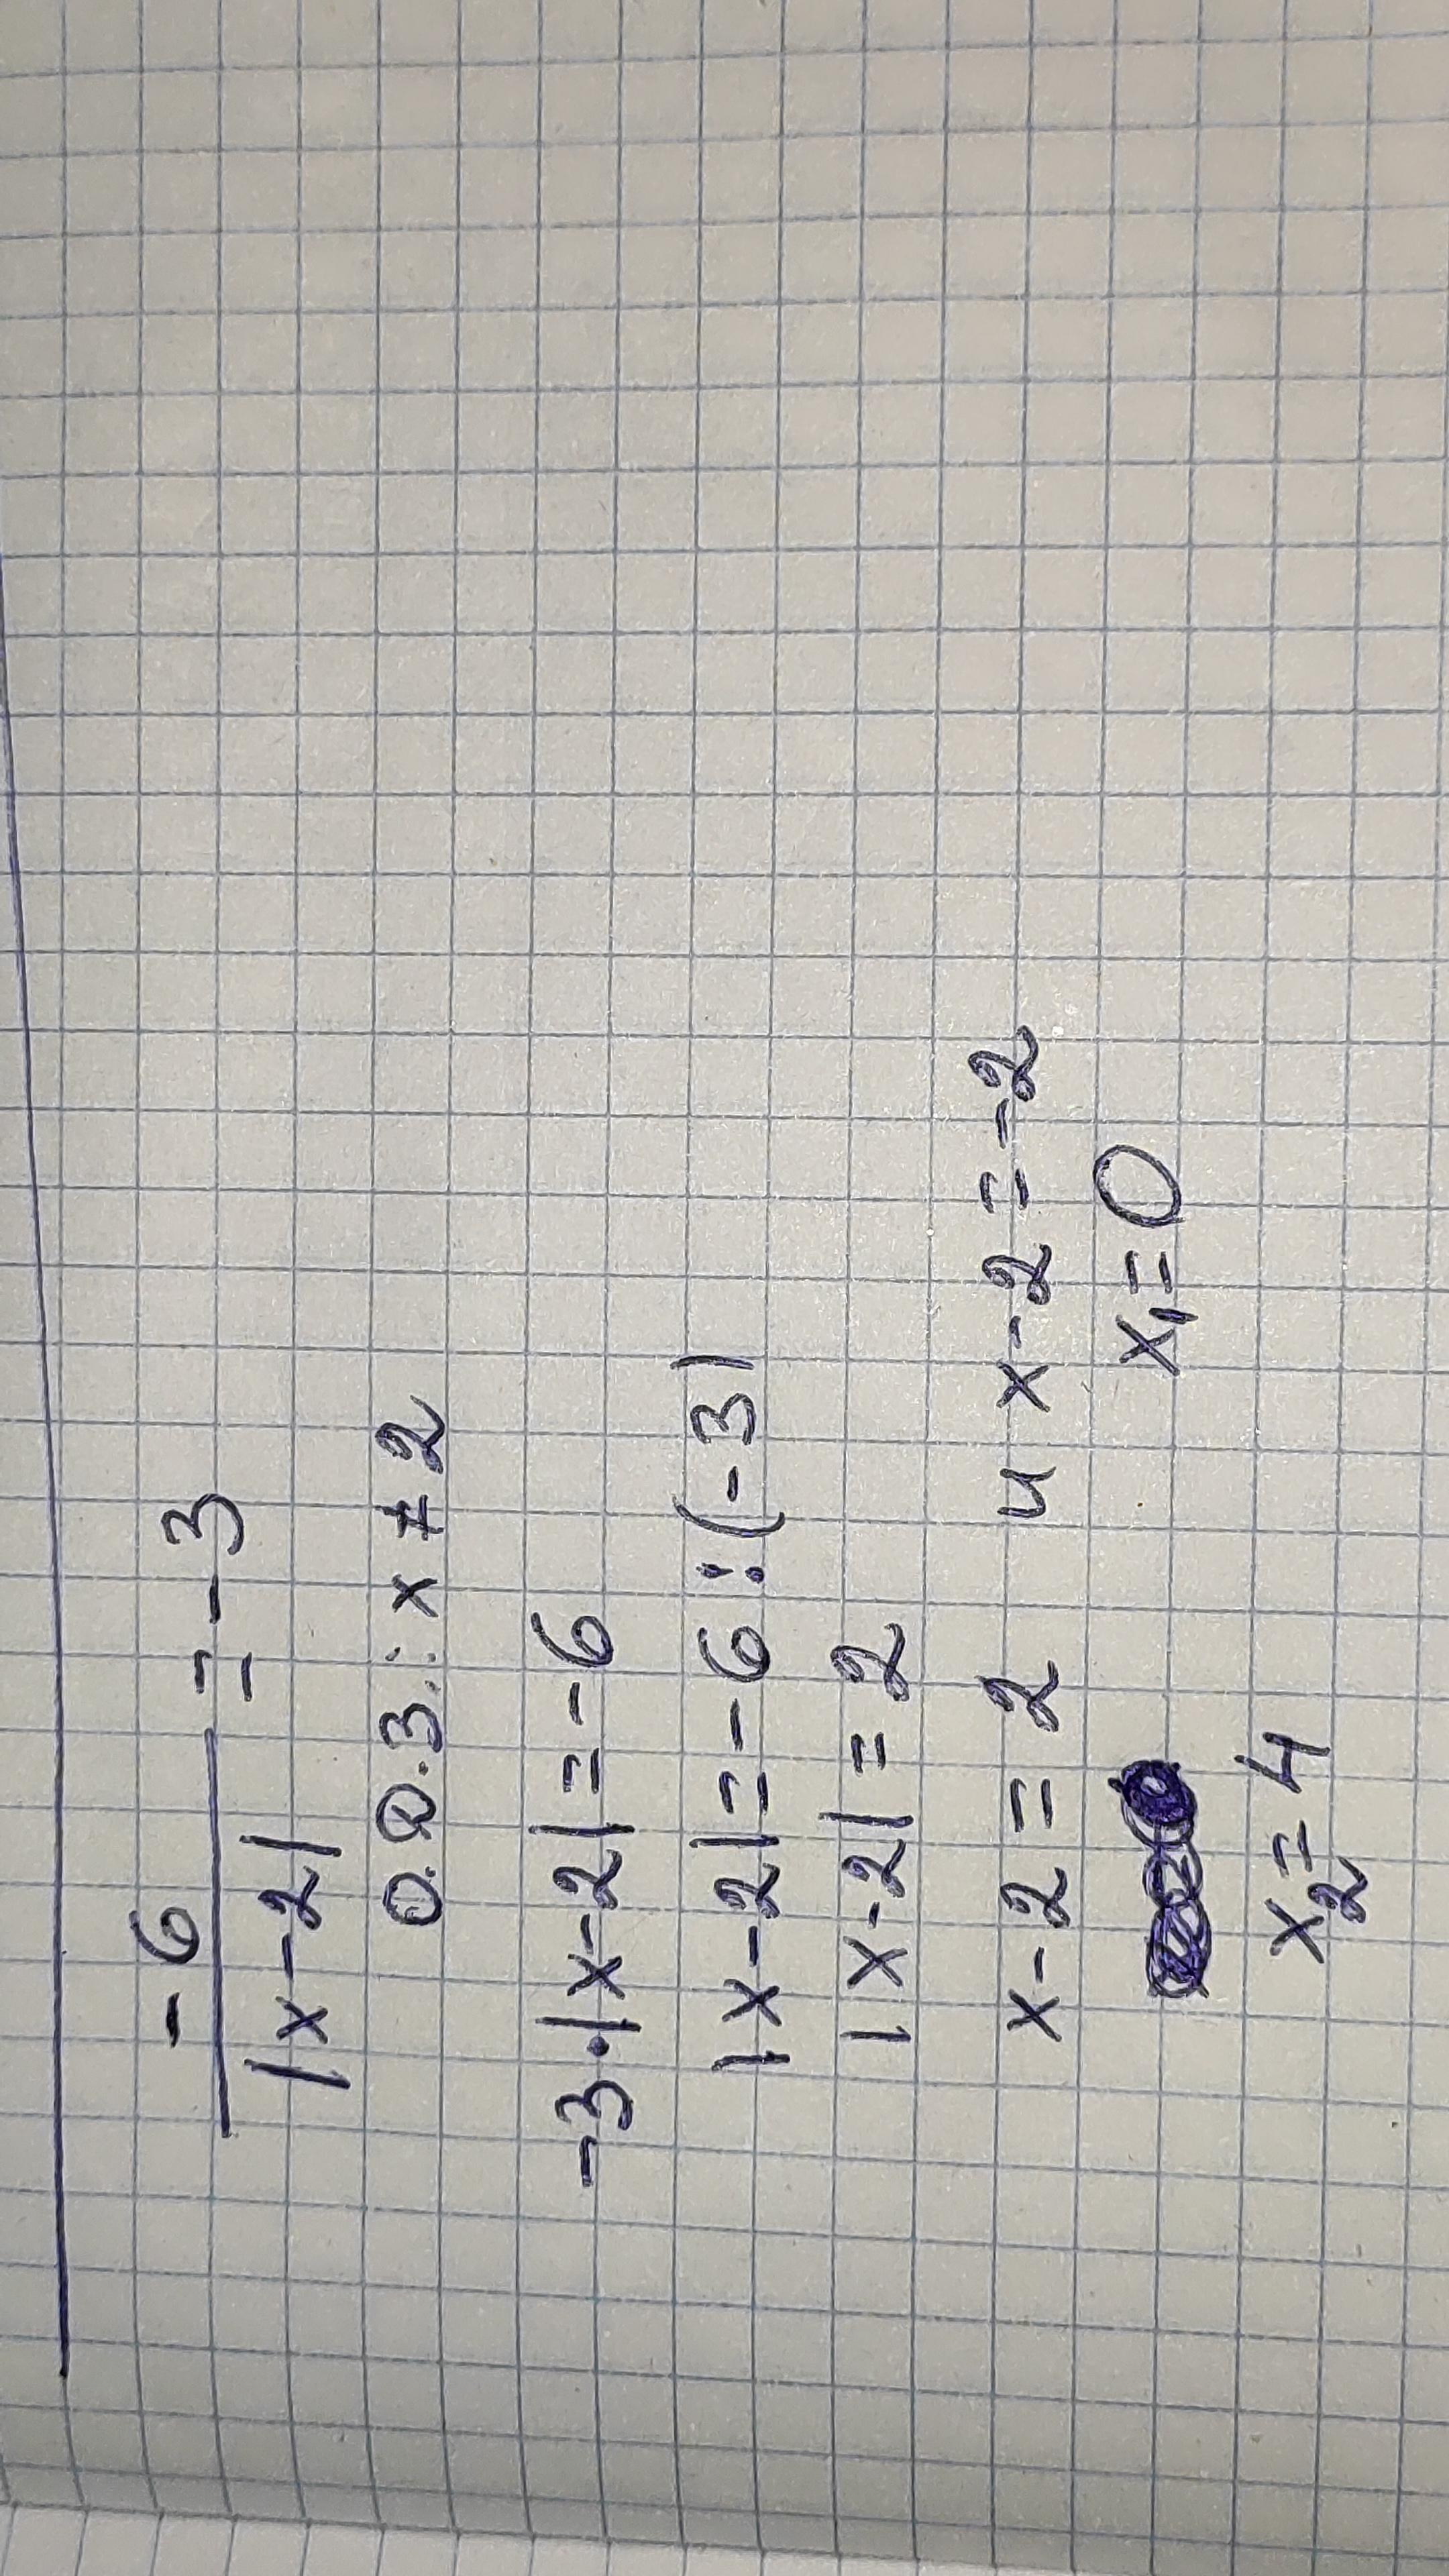 -6
/|x-2| = -3
О.О.З.: x ≠ 2
-3·|x-2|=-6
|x-2|=-6:(-3)
|x-2|=2
x-2=2 и x-2=-2
x₁=0
x₂=4